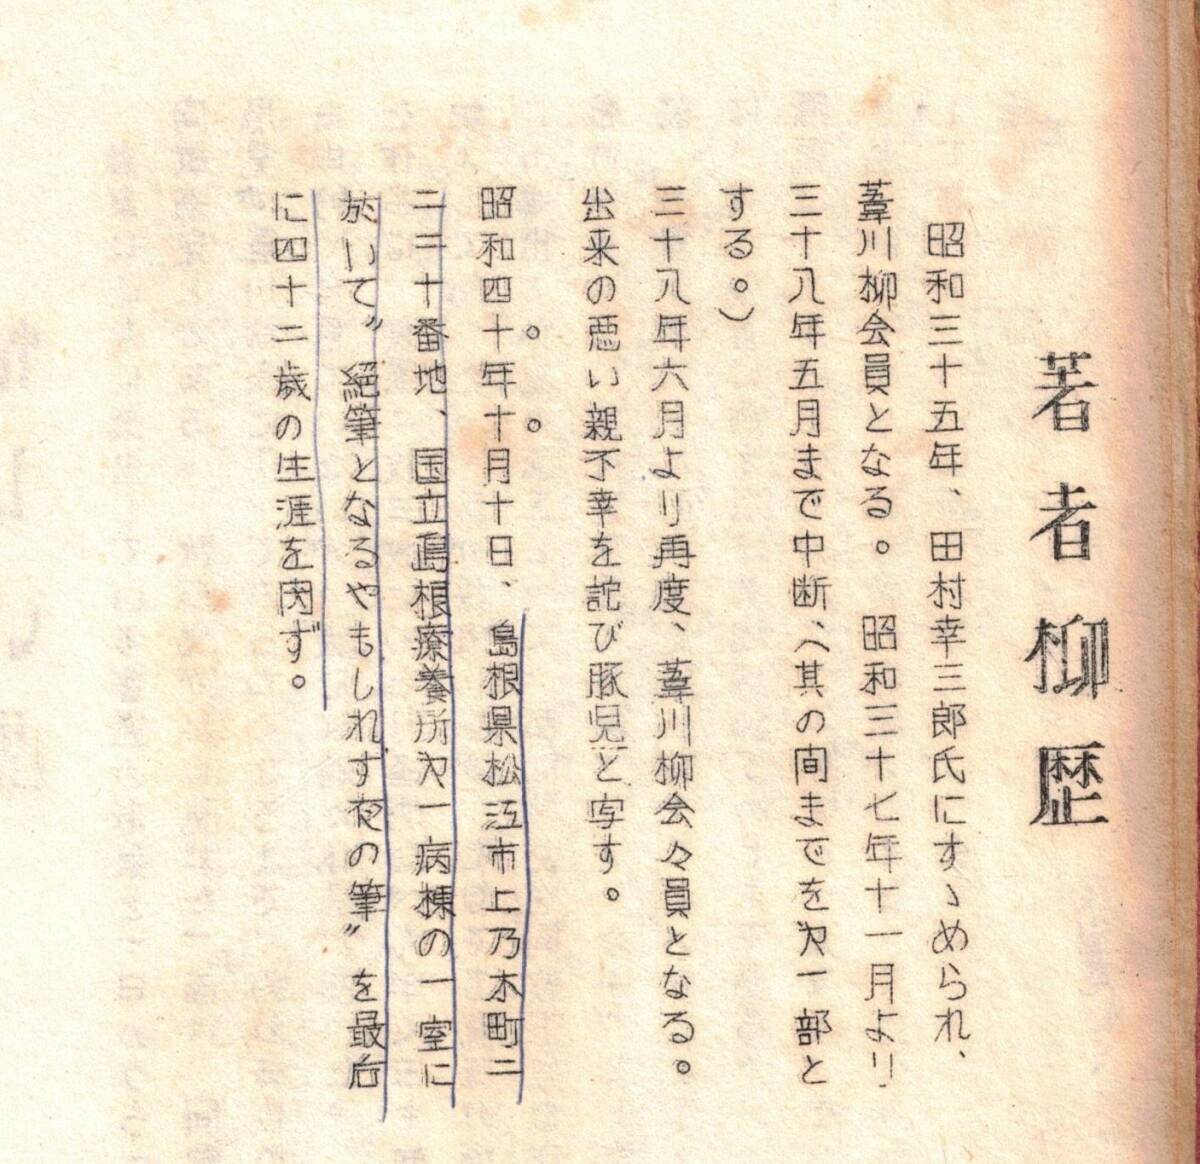 著者柳歴
昭和三十五年、田村幸三郎氏にすゝめられ、
葦川柳会員となる。 昭和三十七年十一月より
三十八年五月まで中断、(其の間までを㐧一部と
する。)
三十八年六月より再度、葦川柳会々員となる。
出来の悪い親不幸を詫び豚児と写す。
。 。
昭和四十年十月十日、島根県松江市上乃木町二
二二十番地、国立島根療養所㐧一病棟の一室に
於いて〝絶筆となるやもしれず夜の筆〟を最后
に四十二歳の生涯を閉ず。